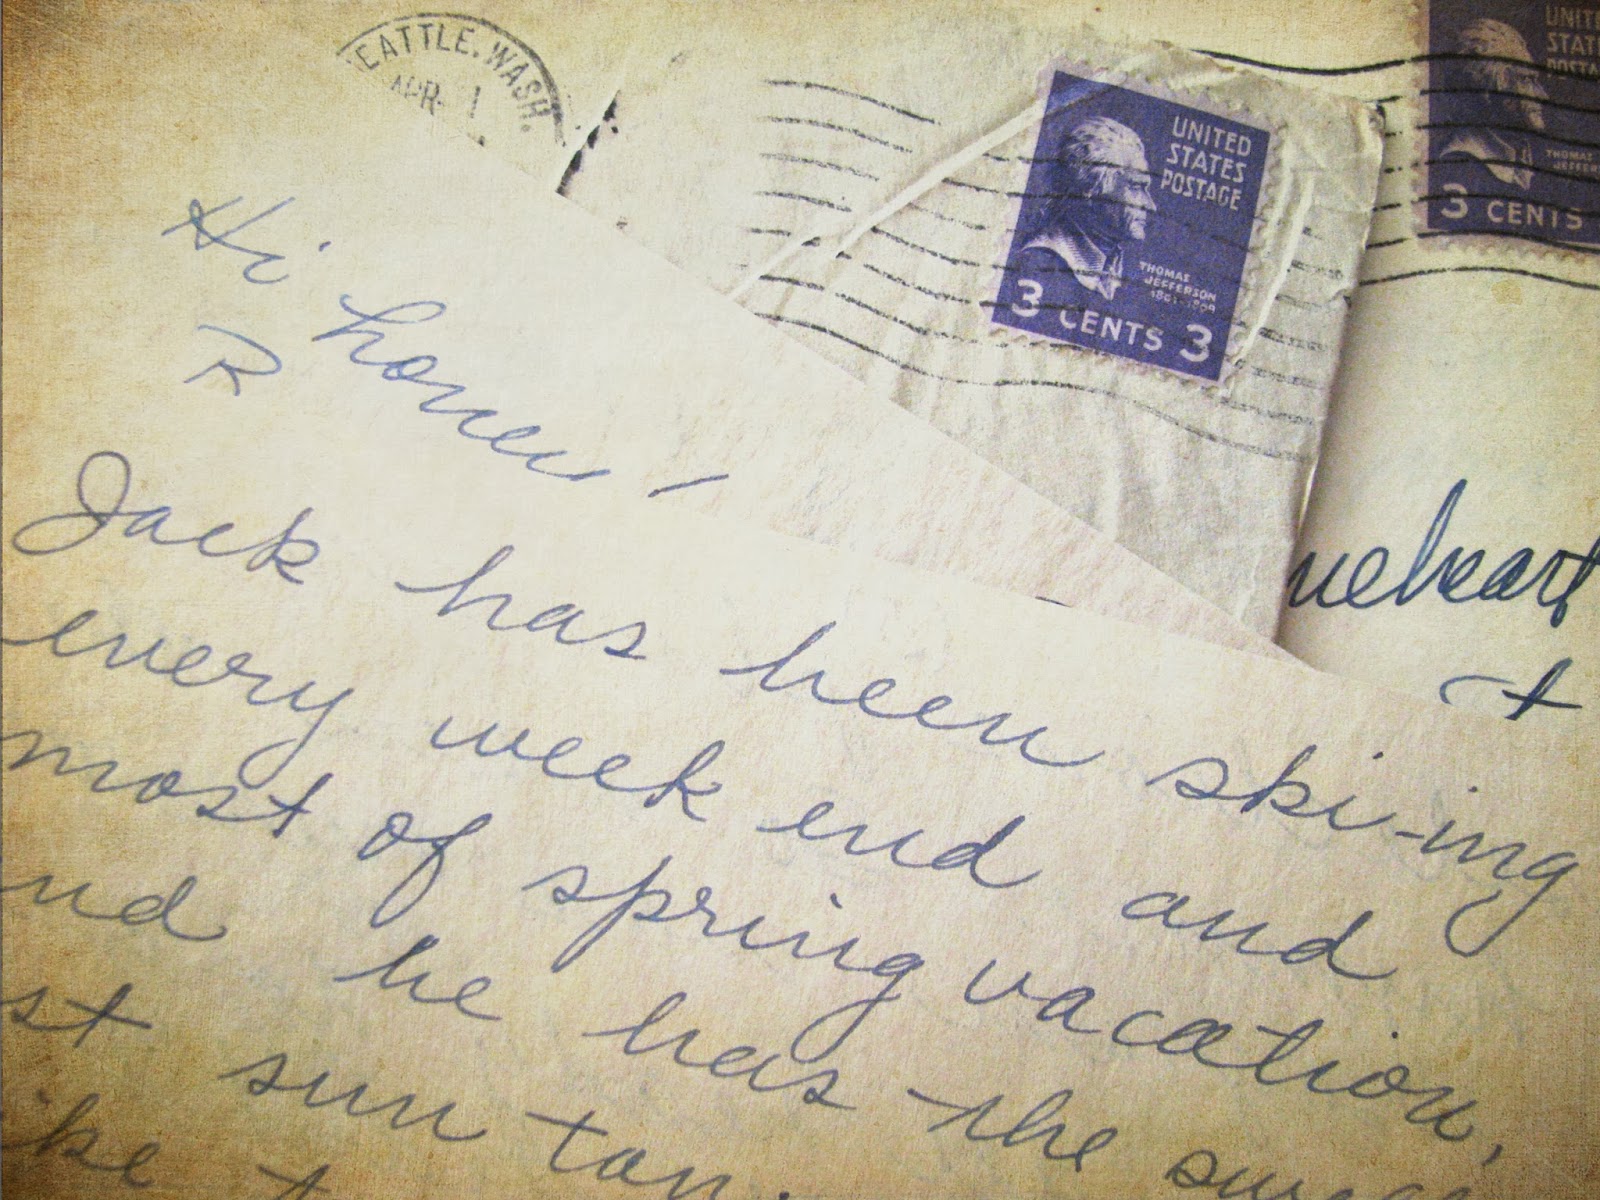 EATTLE. WASH.
APR 1
UNITED
STATES
POSTAGE
THOMAS
JEFFERSON
1801-1809
3 CENTS 3
UNIT
STAT
POSTA
THOMAS
JEFFER
3 CENTS
Hi honey –
R
Jack has been ski-ing
every week end and
most of spring vacation,
nd he has the
st sun tan.
ike t